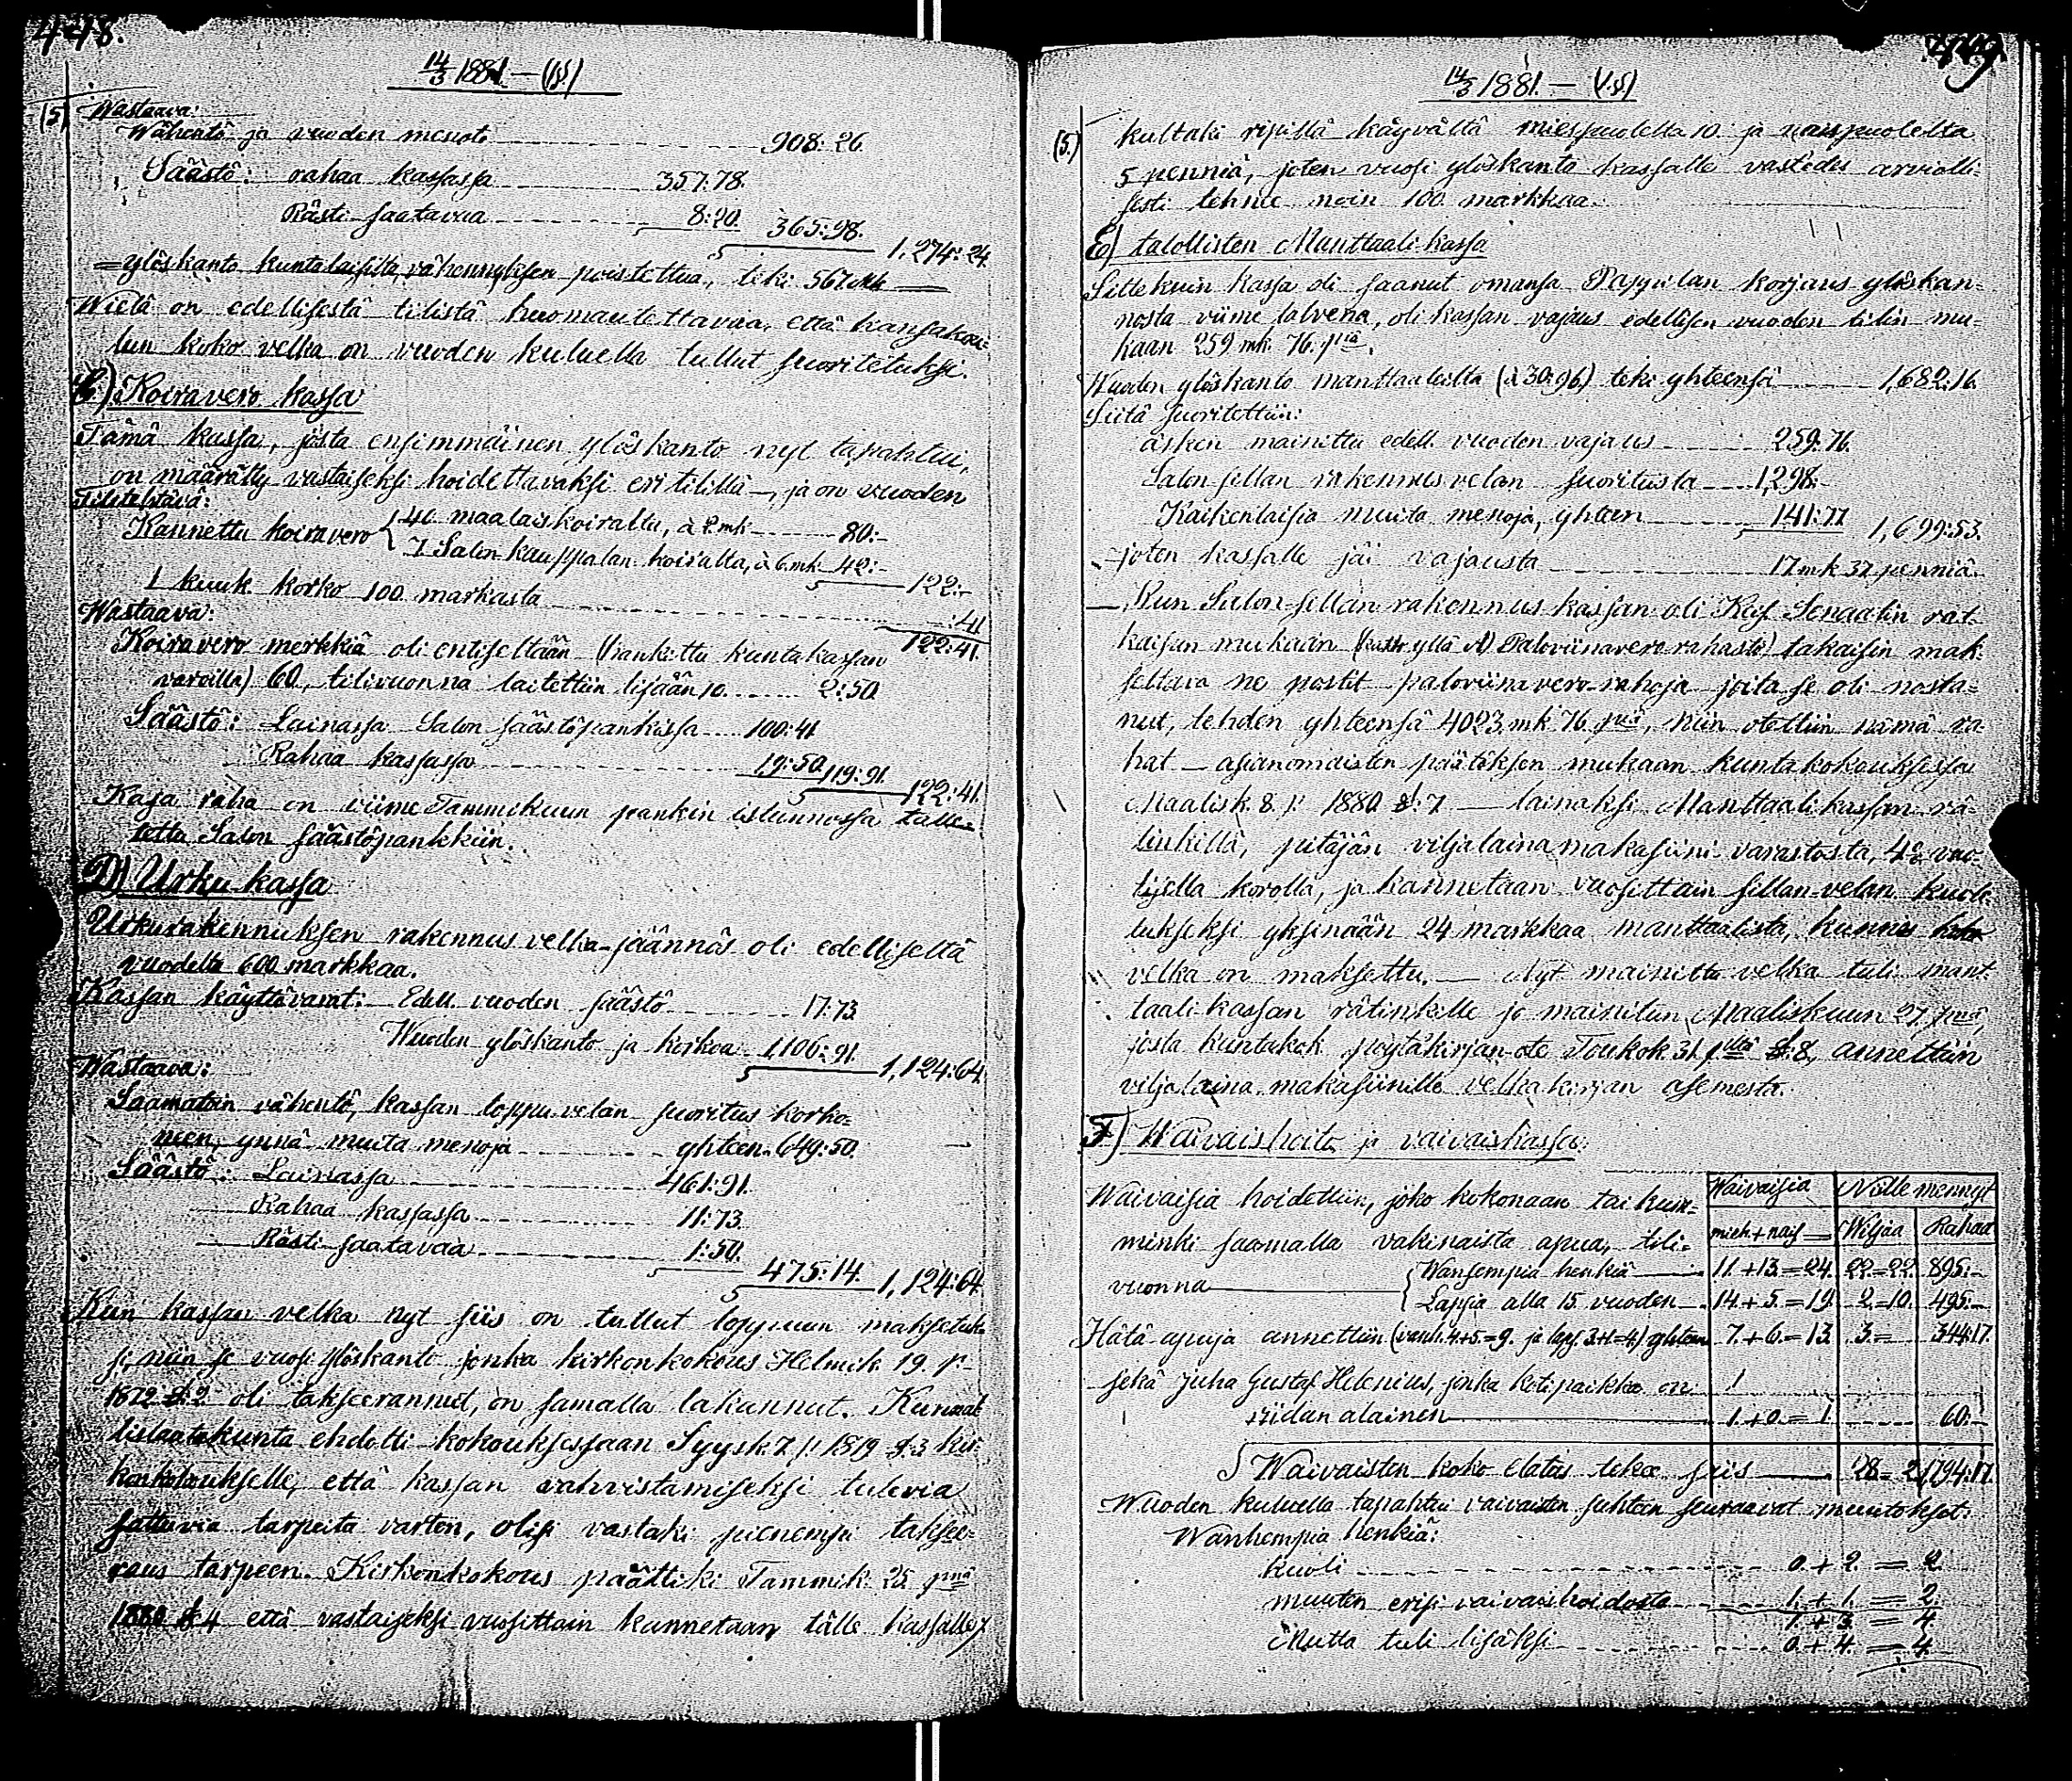 448.
14/3 1881. — (§5)
(5) Wastaava:
Wähentö ja vuoden menot 908:26
Säästö: rahaa kassassa 357:78.
Rästi-saatavaa 8:20. 365:98. 1,274:24.
= ylöskanto kuntalaisilta, vähennyksen poistettua, teki 567 mk —
Wielä on edellisestä tilistä huomautettavaa, että kansakou-
lun koko velka on vuoden kuluella tullut suoritetuksi.
C.) Koiravero kassa
Tämä kassa, josta ensimmäinen ylöskanto nyt tapahtui,
on määrätty vastaiseksi hoidettavaksi eri tilillä —, ja on vuoden
Tilitehtävä:
Kannettu koiravero { 40 maalaiskoiralta, à 2 mk 80:-
7 Salon kauppalan koiralta, à 6 mk 42:- 122:-
1 kuuk korko 100 markasta :41
Wastaava: 122:41.
Koiravero merkkiä oli entiseltään (hankittu kuntakassan
varoilla) 60, tilivuonna laitettiin lisään 10. 2:50
Säästö: Lainassa Salon säästöpankissa 100:41
Rahaa kassassa 19:50 119:91. 122:41.
Kasa raha on viime Tammikuun pankin istunnossa talle-
tettu Salon säästöpankkiin.
D) Urku kassa
Urkurakennuksen rakennus velka-jäännös oli edelliseltä
vuodelta 600 markkaa.
Kassan käyttövarat: Edell. vuoden säästö 17:73
Wuoden ylöskanto ja korkoa 1,106:91. 1,124:64.
Wastaava:
Saamatoin vähentö, kassan loppu velan suoritus korko-
neen, ynnä muita menoja yhteen. 649:50.
Säästö: Lainassa 461:91.
Rahaa kassassa 11:73.
Rästi-saatavaa 1:50. 475:14. 1,124:64.
Kun kassan velka nyt siis on tullut loppuun maksetuk-
si, niin se vuosi ylöskanto jonka kirkonkokous Helmik 19. p-
1872 §:2 oli takseerannut, on samalla lakannut. Kunnal-
lislautakunta ehdotti kokouksessaan Syysk 7 p 1879 §:3 kir-
konkokoukselle, että kassan vahvistamiseksi tulevia
sattuvia tarpeita varten, olisi vastaki pienempi taksee-
raus tarpeen. Kirkonkokous päättiki Tammik. 25 pnä
1880 §:4 että vastaiseksi vuosittain kannetaan tälle kassalle
449.
14/3 1881. — (§5)
(5.) kultaki ripillä käyvältä miespuolelta 10. ja naispuolelta
5 penniä, joten vuosi ylöskanto kassalle vastedes arviolli-
sesti tehnee noin 100 markkaa.
E) talollisten Manttaali-kassa
Sittekuin kassa oli saanut omansa Pappilan korjaus ylöskan-
nosta viime talvena, oli kassan vajaus edellisen vuoden tilin mu-
kaan 259 mk. 76. piä.
Wuoden ylöskanto manttaalilta (à 30:96) teki yhteensä 1,682:16.
Siitä suoritettiin:
äsken mainittu edell. vuoden vajaus 259:76.
Salon sillan rakennus velan suoritusta 1,298:-
Kaikenlaisia muita menoja, yhteen 141:77 1,699:53.
- joten kassalle jäi vajausta 17 mk 37 penniä.
— Kun Salon-sillan rakennus kassan oli Keis. Senaatin rat-
kaisun mukaan (katso yllä A) Paloviinavero rahasto) takaisin mak-
settava ne postit paloviinavero-rahoja joita se oli nosta-
nut, tehden yhteensä 4023 mk 76 piä, niin otettiin nämä ra-
hat — asianomaisten päätöksen mukaan kuntakokouksessa
Maalisk. 8 p 1880 §:7 — lainaksi Manttaalikassan vä-
linkillä, pitäjän viljalainamakasiini varastosta, 4% vuo-
tisella korolla, ja kannetaan vuosittain sillan-velan kuole-
tukseksi yksinään 24 markkaa manttaalista, kunnes koko
velka on maksettu. — Nyt mainittu velka tuli mant-
taali-kassan rätinkille jo mainitun Maaliskuun 27 pnä,
josta kuntakok. pöytäkirjan-ote Toukok. 31 pltä §:8, annettiin
viljalaina makasiinille velkakirjan asemesta.
F) Waivaishoito ja vaivaiskassa.
Waivaisia hoidettiin, joko kokonaan tai kum- Waivaisia Niille mennyt
minki saamalla vakinaista apua, tili- mieh. + nais — Wiljaa Rahaa
vuonna { Wanhempia henkiä 11. + 13. = 24. 22.=22. 895:-
Lapsia alla 15 vuoden 14. + 5. = 19. 2.=10. 495:-
Hätä-apuja annettiin (vanh. 4+5=9. ja laps. 3+1=4.) yhteen 7. + 6. = 13. 3.= 344:17.
sekä Juha Gustaf Helenius, jonka kotipaikka on
riidan alainen 1. + 0. = 1. 60:-
S Waivaisten koko elatus tekee siis 28 = 2 1,794:17.
Wuoden kuluella tapahtui vaivaisten suhteen seuraavat muutokset:
Wanhempia henkiä:
kuoli 0. + 2. = 2.
muuten erisi vaivaishoidosta 1. + 1. = 2.
1. + 3. = 4.
Mutta tuli lisäksi 0. + 4. = 4